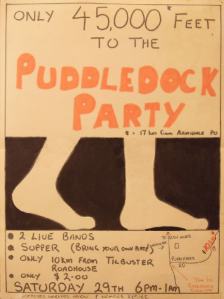 ONLY 45,000* FEET
TO THE
PUDDLEDOCK
PARTY
* = 17 km from ARMIDALE PO
• 2 LIVE BANDS
• SUPPER (BRING YOUR OWN MEAT)
• ONLY 10km FROM TILBUSTER ROADHOUSE
• ONLY $2.00
SATURDAY 29TH 6PM-1AM